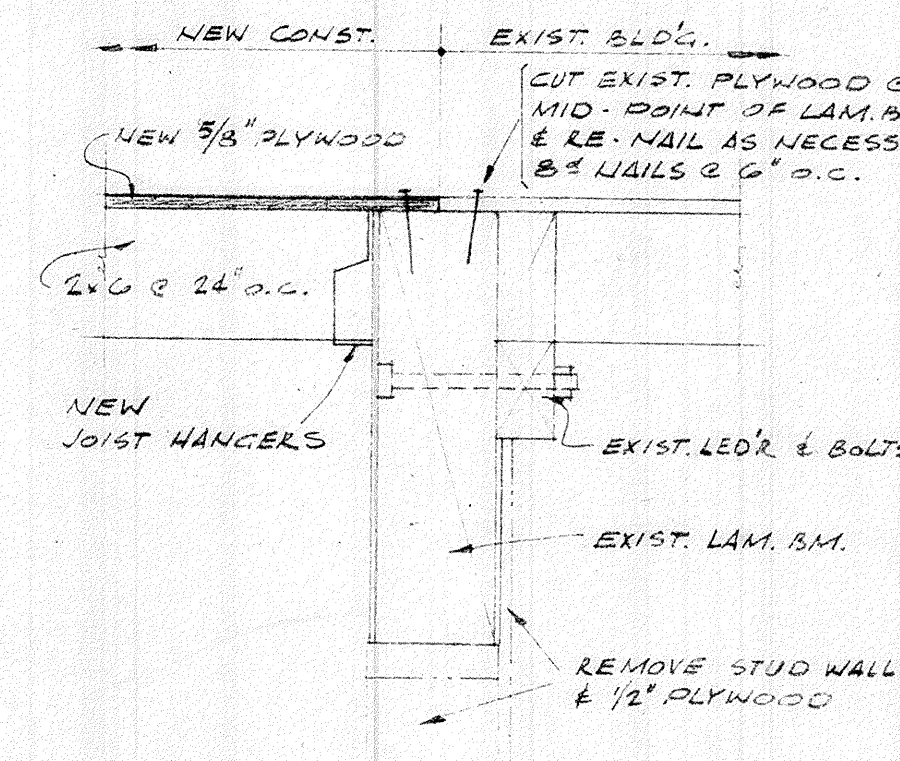 NEW CONST.
EXIST. BLD'G.
CUT EXIST. PLYWOOD @
MID-POINT OF LAM. B
& RE-NAIL AS NECESS
8d NAILS @ 6" O.C.
NEW 5/8" PLYWOOD
2x6 @ 24" O.C.
NEW
JOIST HANGERS
EXIST. LED'R & BOLTS
EXIST. LAM. BM.
REMOVE STUD WALL
& 1/2" PLYWOOD